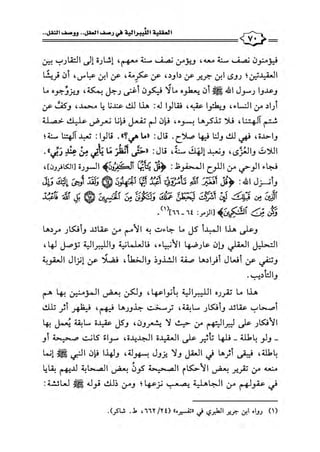 العقلية الليبرالية في رصف العقل.. ووصف النقل..
٧٠
فيؤمنون نصف سنة معه، ويؤمن نصف سنة معهم، إشارة إلى التقارب بين
العقيدتين؛ روى ابن جرير عن داود، عن عكرمة، عن ابن عباس، أن قريشًا
وعدوا رسول الله ﷺ أن يعطوه مالًا فيكون أغنى رجل بمكة، ويزوجوه ما
أراد من النساء، ويطئوا عقبه، فقالوا له: هذا لك عندنا يا محمد، وكف عن
شتم آلهتنا، فلا تذكرها بسوء، فإن لم تفعل فإنا نعرض عليك خصلة
واحدة، فهي لك ولنا فيها صلاح. قال: «ما هي؟». قالوا: تعبد آلهتنا سنة؛
اللات والعُزى، ونعبد إلهك سنة، قال: «حتى أنظر ما يأتي من عند ربي».
فجاء الوحي من اللوح المحفوظ: ﴿قُلْ يَٰٓأَيُّهَا ٱلْكَٰفِرُونَ﴾ السورة [الكافرون]،
وأنـزل الله: ﴿قُلْ أَفَغَيْرَ ٱللَّهِ تَأْمُرُوٓنِّيٓ أَعْبُدُ أَيُّهَا ٱلْجَٰهِلُونَ ۝ وَلَقَدْ أُوحِيَ إِلَيْكَ وَإِلَى
ٱلَّذِينَ مِن قَبْلِكَ لَئِنْ أَشْرَكْتَ لَيَحْبَطَنَّ عَمَلُكَ وَلَتَكُونَنَّ مِنَ ٱلْخَٰسِرِينَ ۝ بَلِ ٱللَّهَ فَٱعْبُدْ
وَكُن مِّنَ ٱلشَّٰكِرِينَ﴾ [الزمر: ٦٤ ـ ٦٦](١).
وعلى هذا المبدأ كل ما جاءت به الأمم من عقائد وأفكار مردها
التحليل العقلي وإن عارضها الأنبياء، فالعلمانية والليبرالية تؤصل لها،
وتنفي عن أفعال أفرادها صفة الشذوذ والخطأ، فضلًا عن إنزال العقوبة
والتأديب.
هذا ما تقرره الليبرالية بأنواعها، ولكن بعض المؤمنين بها هم
أصحاب عقائد وأفكار سابقة، ترسخت جذورها فيهم، فيظهر أثر تلك
الأفكار على ليبراليتهم من حيث لا يشعرون، وكل عقيدة سابقة يُعمل بها
ـ ولو باطلة ـ فلها تأثير على العقيدة الجديدة، سواءً كانت صحيحة أو
باطلة، فيبقى أثرها في العقل ولا يزول بسهولة، ولهذا فإن النبي ﷺ إنما
منعه من تقرير بعض الأحكام الصحيحة كونُ بعض الصحابة لديهم بقايا
في عقولهم من الجاهلية يصعب نزعها؛ ومن ذلك قوله ﷺ لعائشة:
(١) رواه ابن جرير الطبري في «تفسيره» (٢٤/ ٦٦٢، ط. شاكر).